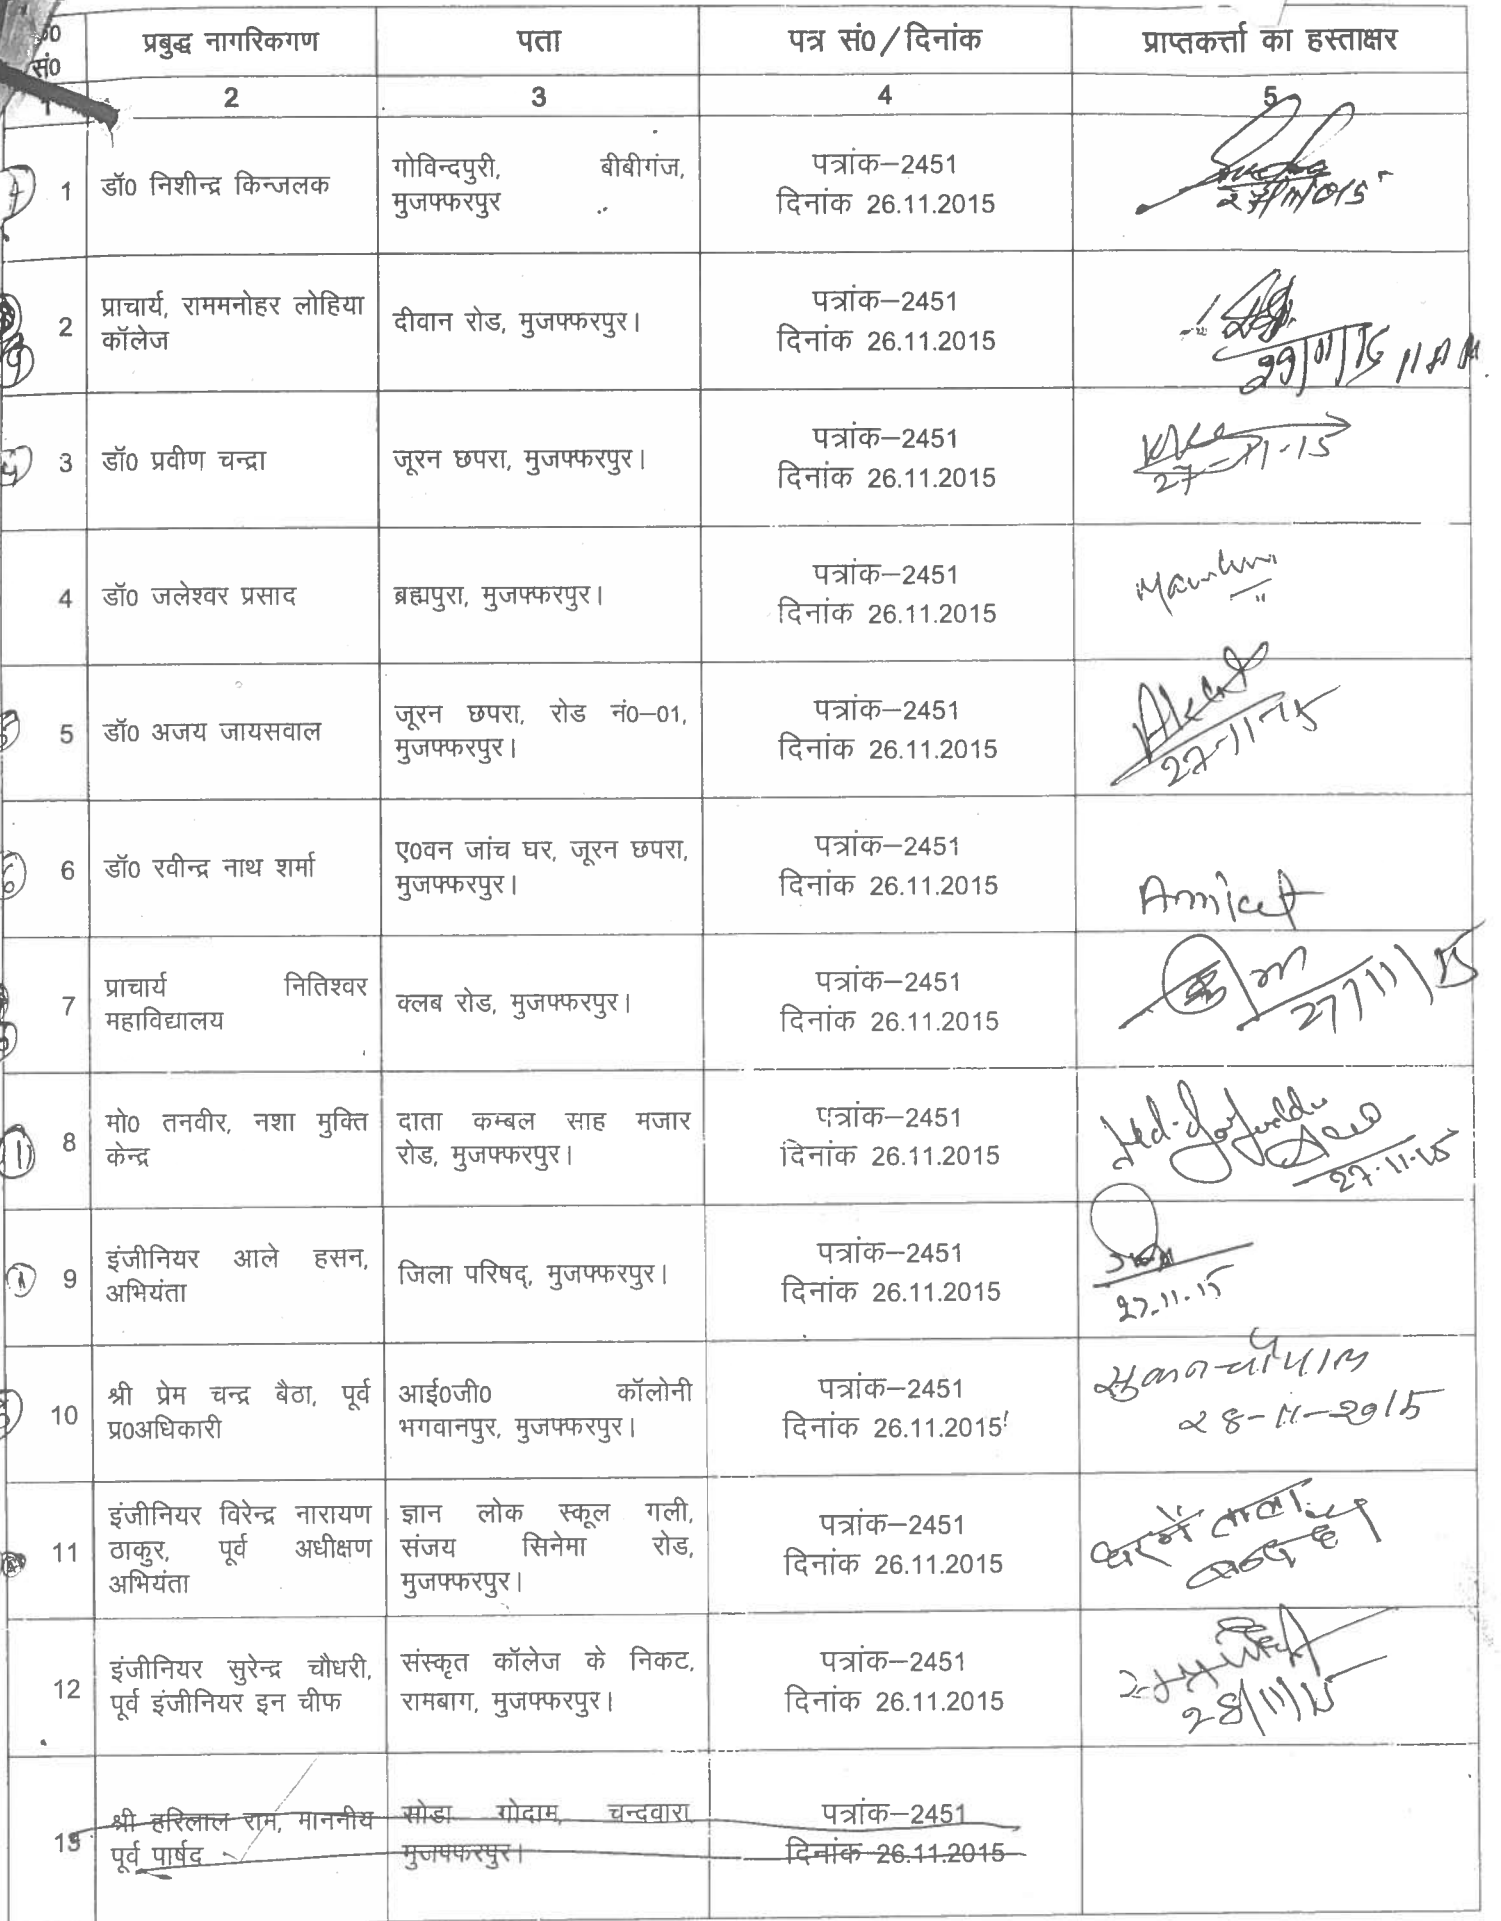 सं0
प्रबुद्ध नागरिकगण
पता
पत्र सं0/दिनांक
प्राप्तकर्त्ता का हस्ताक्षर
1 2 3 4 5
1 डॉ0 निशीन्द्र किन्जलक
गोविन्दपुरी, बीबीगंज,
मुजफ्फरपुर
पत्रांक–2451
दिनांक 26.11.2015
2 प्राचार्य, राममनोहर लोहिया
कॉलेज
दीवान रोड, मुजफ्फरपुर।
पत्रांक–2451
दिनांक 26.11.2015
29/11/15 11 AM.
3 डॉ0 प्रवीण चन्द्रा
जूरन छपरा, मुजफ्फरपुर।
पत्रांक–2451
दिनांक 26.11.2015
27-11-15
4 डॉ0 जलेश्वर प्रसाद
ब्रह्मपुरा, मुजफ्फरपुर।
पत्रांक–2451
दिनांक 26.11.2015
5 डॉ0 अजय जायसवाल
जूरन छपरा, रोड नं0–01,
मुजफ्फरपुर।
पत्रांक–2451
दिनांक 26.11.2015
27-11-15
6 डॉ0 रवीन्द्र नाथ शर्मा
ए0वन जांच घर, जूरन छपरा,
मुजफ्फरपुर।
पत्रांक–2451
दिनांक 26.11.2015
Aniket
7 प्राचार्य नितिश्वर
महाविद्यालय
क्लब रोड, मुजफ्फरपुर।
पत्रांक–2451
दिनांक 26.11.2015
27/11/15
8 मो0 तनवीर, नशा मुक्ति
केन्द्र
दाता कम्बल साह मजार
रोड, मुजफ्फरपुर।
पत्रांक–2451
दिनांक 26.11.2015
27-11-15
9 इंजीनियर आले हसन,
अभियंता
जिला परिषद्, मुजफ्फरपुर।
पत्रांक–2451
दिनांक 26.11.2015
27.11.15
10 श्री प्रेम चन्द्र बैठा, पूर्व
प्र0अधिकारी
आई0जी0 कॉलोनी
भगवानपुर, मुजफ्फरपुर।
पत्रांक–2451
दिनांक 26.11.2015
२8-11-2015
11 इंजीनियर विरेन्द्र नारायण
ठाकुर, पूर्व अधीक्षण
अभियंता
ज्ञान लोक स्कूल गली,
संजय सिनेमा रोड,
मुजफ्फरपुर।
पत्रांक–2451
दिनांक 26.11.2015
घर में ताला
बन्द है।
12 इंजीनियर सुरेन्द्र चौधरी,
पूर्व इंजीनियर इन चीफ
संस्कृत कॉलेज के निकट,
रामबाग, मुजफ्फरपुर।
पत्रांक–2451
दिनांक 26.11.2015
28/11/15
13 श्री हरिलाल राम, माननीय
पूर्व पार्षद
सोडा गोदाम, चन्दवारा,
मुजफ्फरपुर।
पत्रांक–2451
दिनांक 26.11.2015